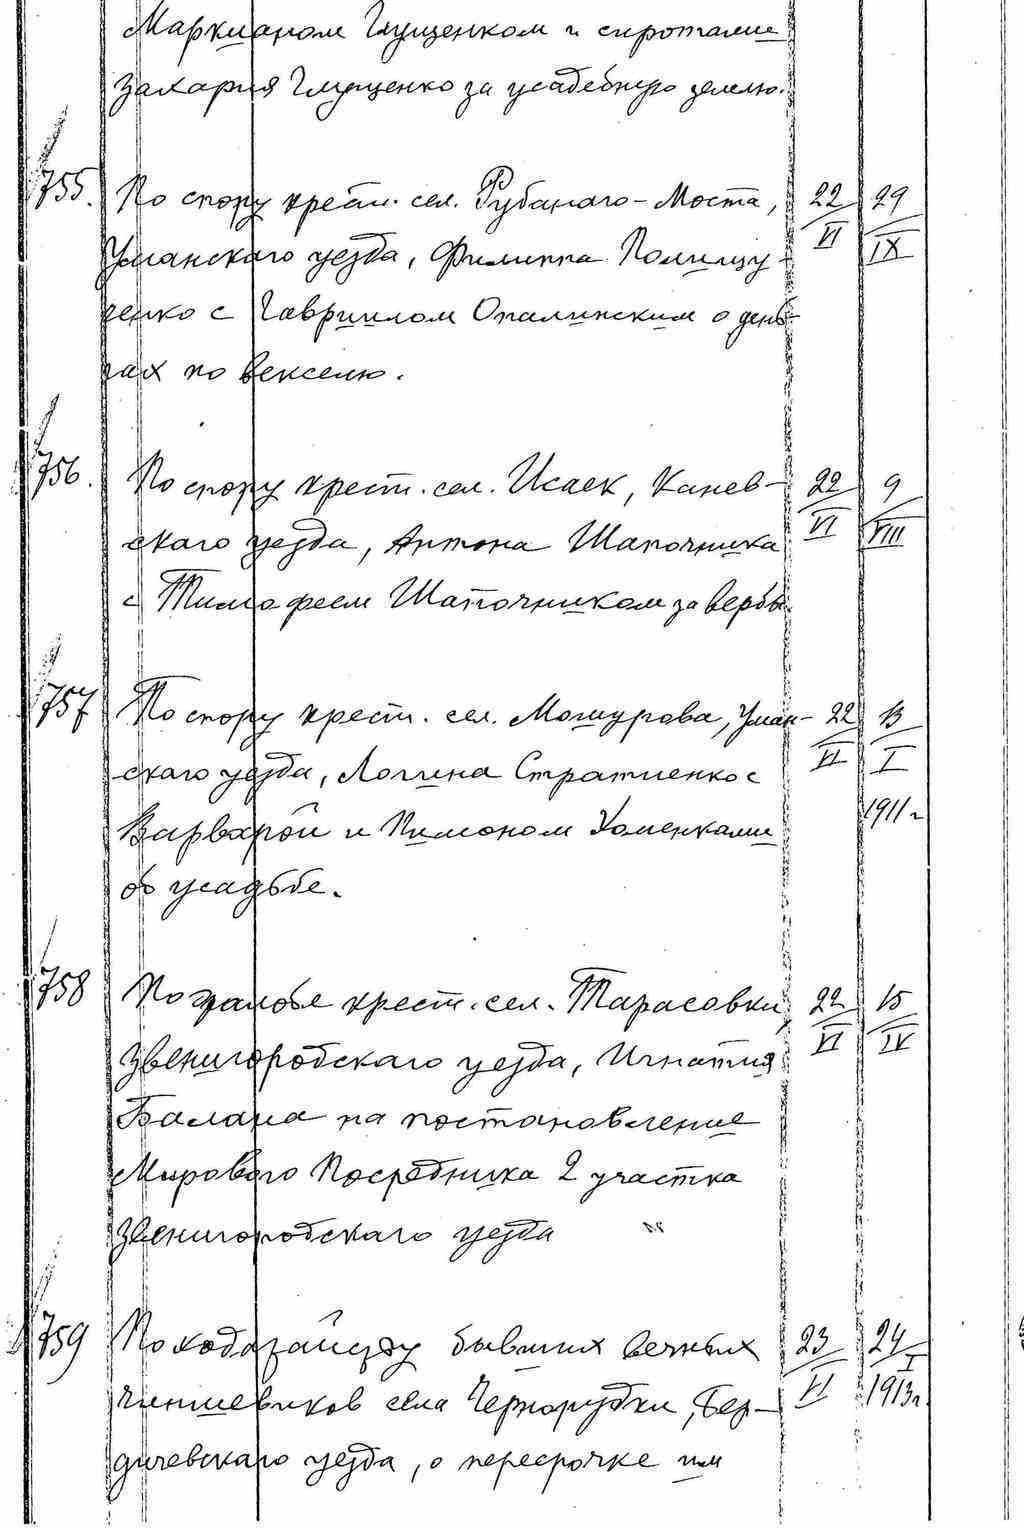 Маркианом Глущенком и сиротами
Захария Глущенко за усадебную землю.
755. По спору крест. сел. Рубаного-Моста, 22/VI 29/IX
Уманскаго уезда, Филиппа Полищу-
ченко с Гавриилом Опалинским о день-
гах по векселю.
756. По спору крест. сел. Исаек, Канев- 22/VI 9/VIII
скаго уезда, Антона Шапочника
с Тимофеем Шапочником за вербы.
757 По спору крест. сел. Мошурова, Уман- 22/VI 13/I
скаго уезда, Логгина Стратиенко с 1911 г
Варварой и Пимоном Хоменками
об усадьбе.
758 По жалобе крест. сел. Тарасовки, 22/VI 15/IV
Звенигородскаго уезда, Игнатия
Балана на постановление
Мирового Посредника 2 участка
Звенигородскаго уезда
759 По ходатайству бывших вечных 23/VI 24/I
чиншевиков села Чернорудки, Бер- 1913г.
дичевскаго уезда, о пересрочке им